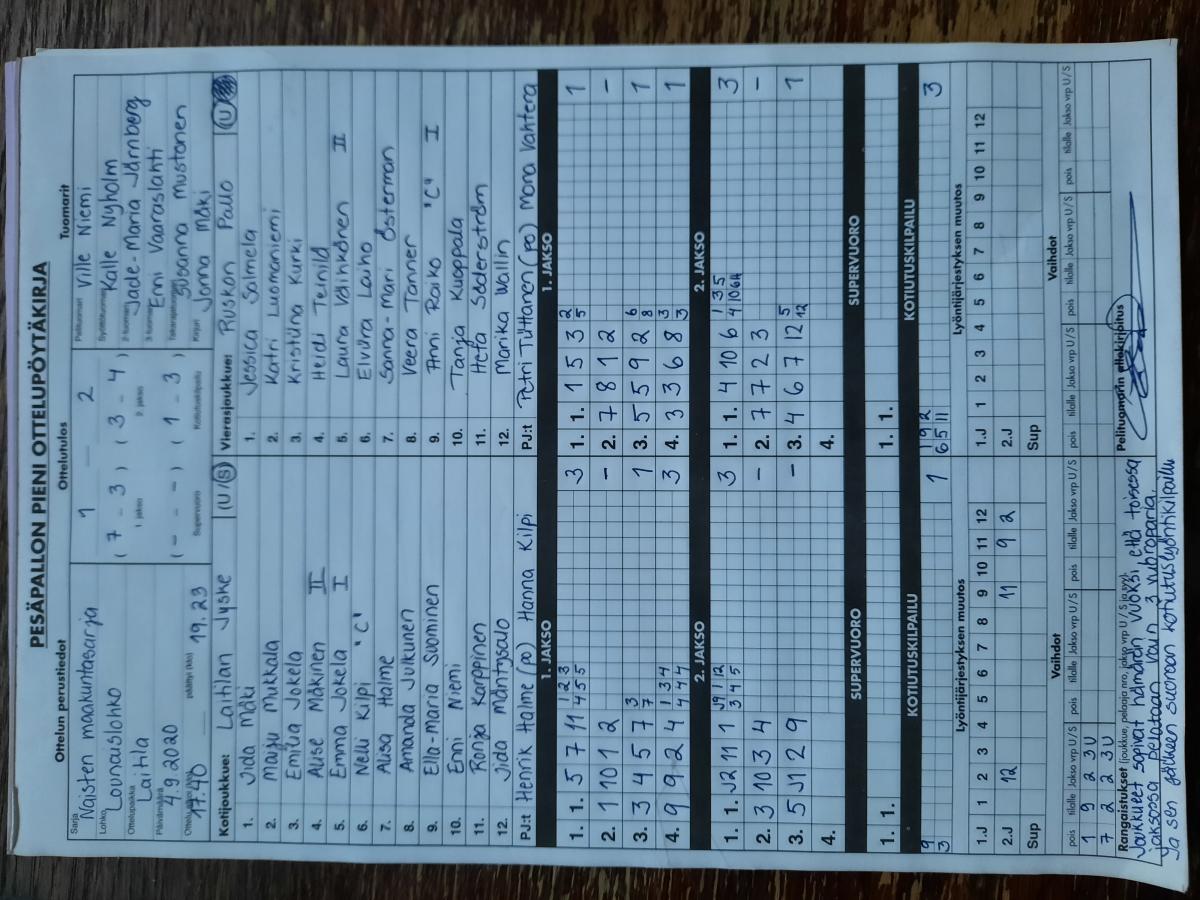 PESÄPALLON PIENI OTTELUPÖYTÄKIRJA
Ottelun perustiedot
Sarja
Naisten maakuntasarja
Lohko
Lounaislohko
Ottelupaikka
Laitila
Päivämäärä
4.9.2020
17.40
päättyi (klo)
19.23
Ottelutulos
1 — 2
( 7 - 3 ) ( 3 - 4 )
1. jakso 2. jakso
( - - - ) ( 1 - 3 )
Supervuoro Kotiutuskilpailu
Tuomarit
Pelituomari
Ville Niemi
Syöttötuomari
Kalle Nyholm
2-tuomari
Jade-Maria Järnberg
3-tuomari
Enni Vaaraslahti
Takarajatuomari
Susanna Mustonen
Kirjuri
Jonna Mäki
Kotijoukkue: Laitilan Jyske (U/S)
1. Iida Mäki
2. Maiju Mukkala
3. Emilia Jokela
4. Alise Mäkinen II
5. Emma Jokela I
6. Nelli Kilpi "C"
7. Alisa Halme
8. Amanda Julkunen
9. Ella-Maria Suominen
10. Enni Niemi
11. Ronja Karppinen
12. Iida Mäntysalo
PJ:t Henrik Halme (po) Hanna Kilpi
Vierasjoukkue: Ruskon Pallo (U
1. Jessica Salmela
2. Katri Luomaniemi
3. Kristiina Kurki
4. Heidi Teinilä
5. Laura Välinkönen II
6. Elviira Laiho
7. Sanna-Mari Österman
8. Veera Tanner
9. Anni Raiko "C" I
10. Tanja Kuoppala
11. Heta Söderström
12. Marika Wallin
PJ:t Petri Tuttanen (po) Mona Vahtera
1. JAKSO
1. 1. 5 7 11 1 2 3 4 5 5 3
2. 1 10 1 2 -
3. 3 4 5 7 3 7 1
4. 9 9 2 4 1 3 4 4 4 4 3
1. JAKSO
1. 1. 1 5 3 2 5 1
2. 7 8 1 2 -
3. 5 5 9 2 6 8 1
4. 3 3 6 8 3 3 1
2. JAKSO
1. 1. J2 11 1 J9 1 12 3 4 5 3
2. 3 10 3 4 -
3. 5 J1 2 9 -
4.
2. JAKSO
1. 1. 4 10 6 1 3 5 3
2. 7 7 2 3 -
3. 4 6 7 12 5 12 1
4.
SUPERVUORO
1. 1.
SUPERVUORO
1. 1.
KOTIUTUSKILPAILU
9
3
1
KOTIUTUSKILPAILU
1 9 2
6 5 11
3
Lyöntijärjestyksen muutos
1 2 3 4 5 6 7 8 9 10 11 12
1.J
2.J 12 11 9 2
Sup
Lyöntijärjestyksen muutos
1 2 3 4 5 6 7 8 9 10 11 12
1.J
2.J
Sup
Vaihdot
pois tilalle Jakso vrp U/S pois tilalle Jakso vrp U/S pois tilalle Jakso vrp U/S
1 9 2 3U
7 2 2 3U
Vaihdot
pois tilalle Jakso vrp U/S pois tilalle Jakso vrp U/S pois tilalle Jakso vrp U/S
Rangaistukset (joukkue, pelaaja nro, jakso vrp U/S ja syy):
Joukkueet sopivat hämärän vuoksi, että toisessa
jaksossa pelataan vain 3 vuoroparia.
Ja sen jälkeen suoraan kotiutuslyöntikilpailu
Pelituomarin allekirjoitus